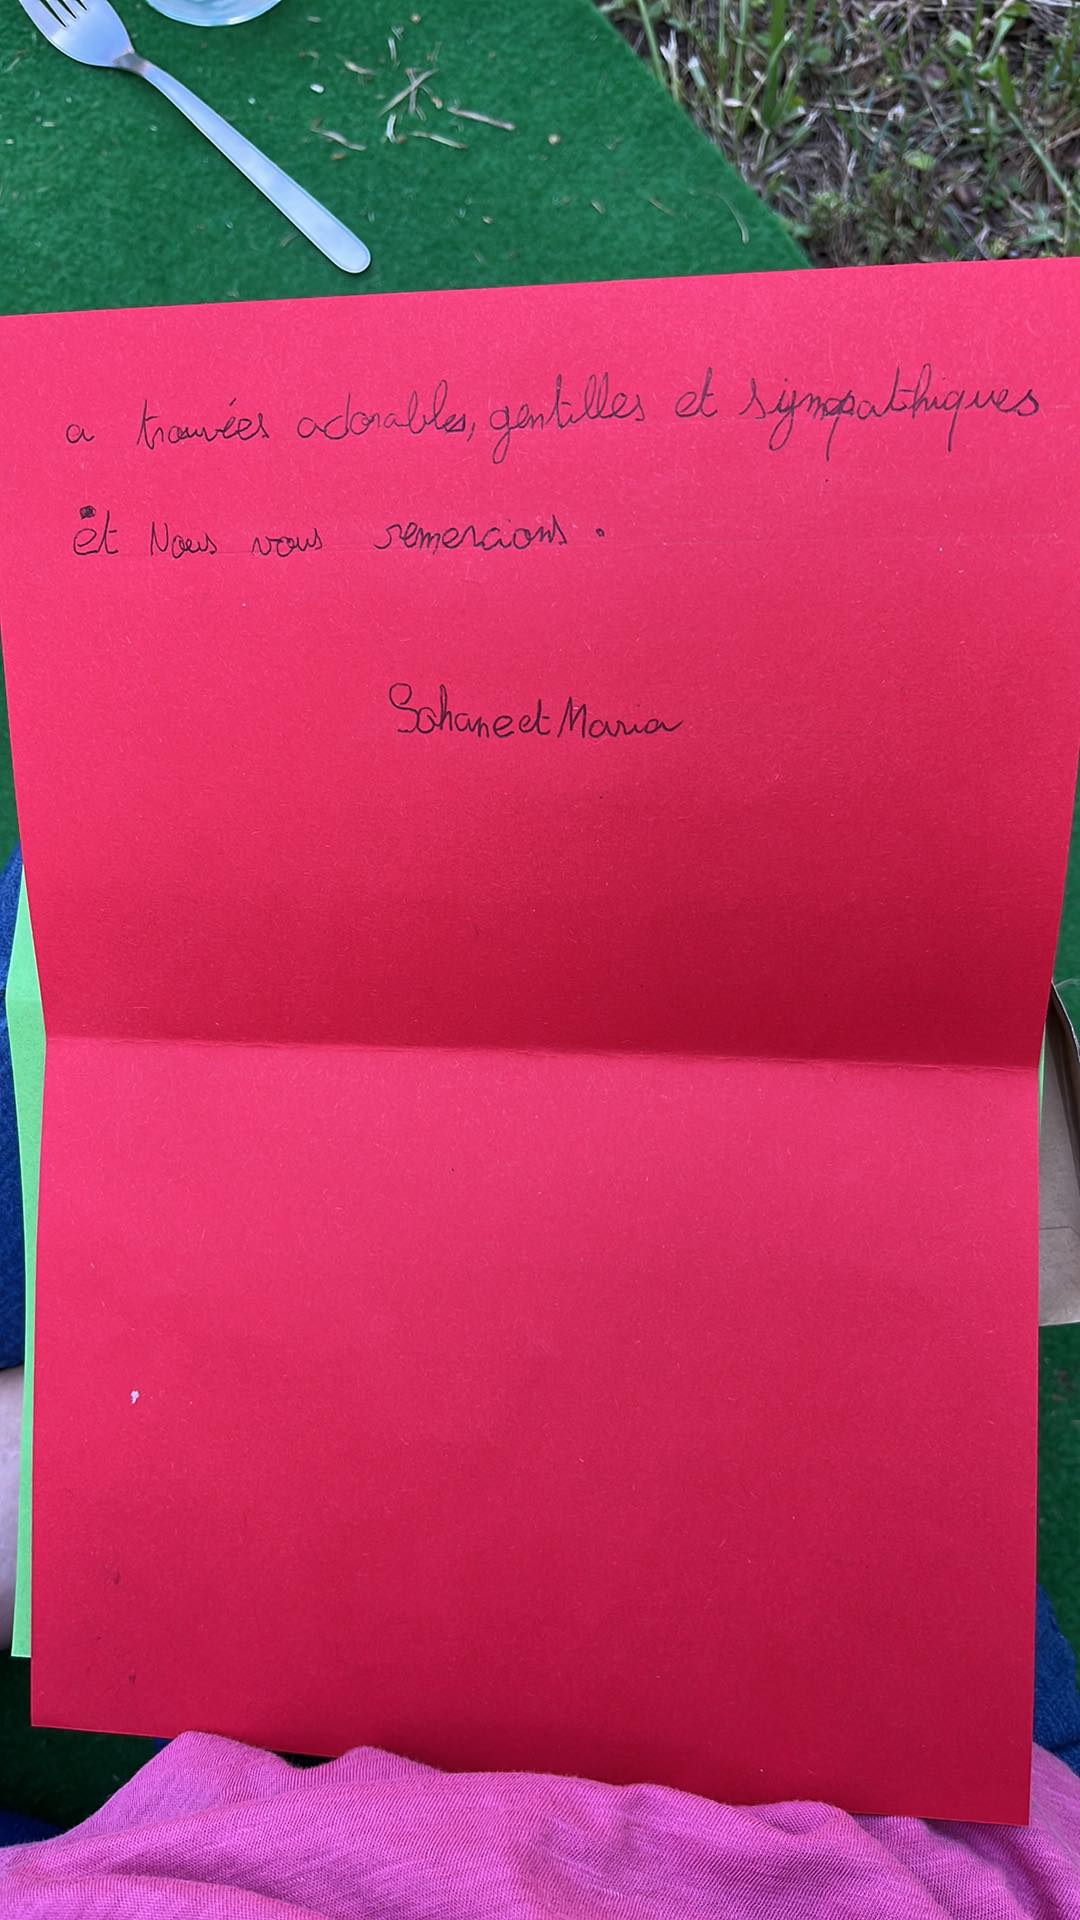 a trouvées adorables, gentilles et sympathiques
et Nous vous remercions.
Sohane et Maria